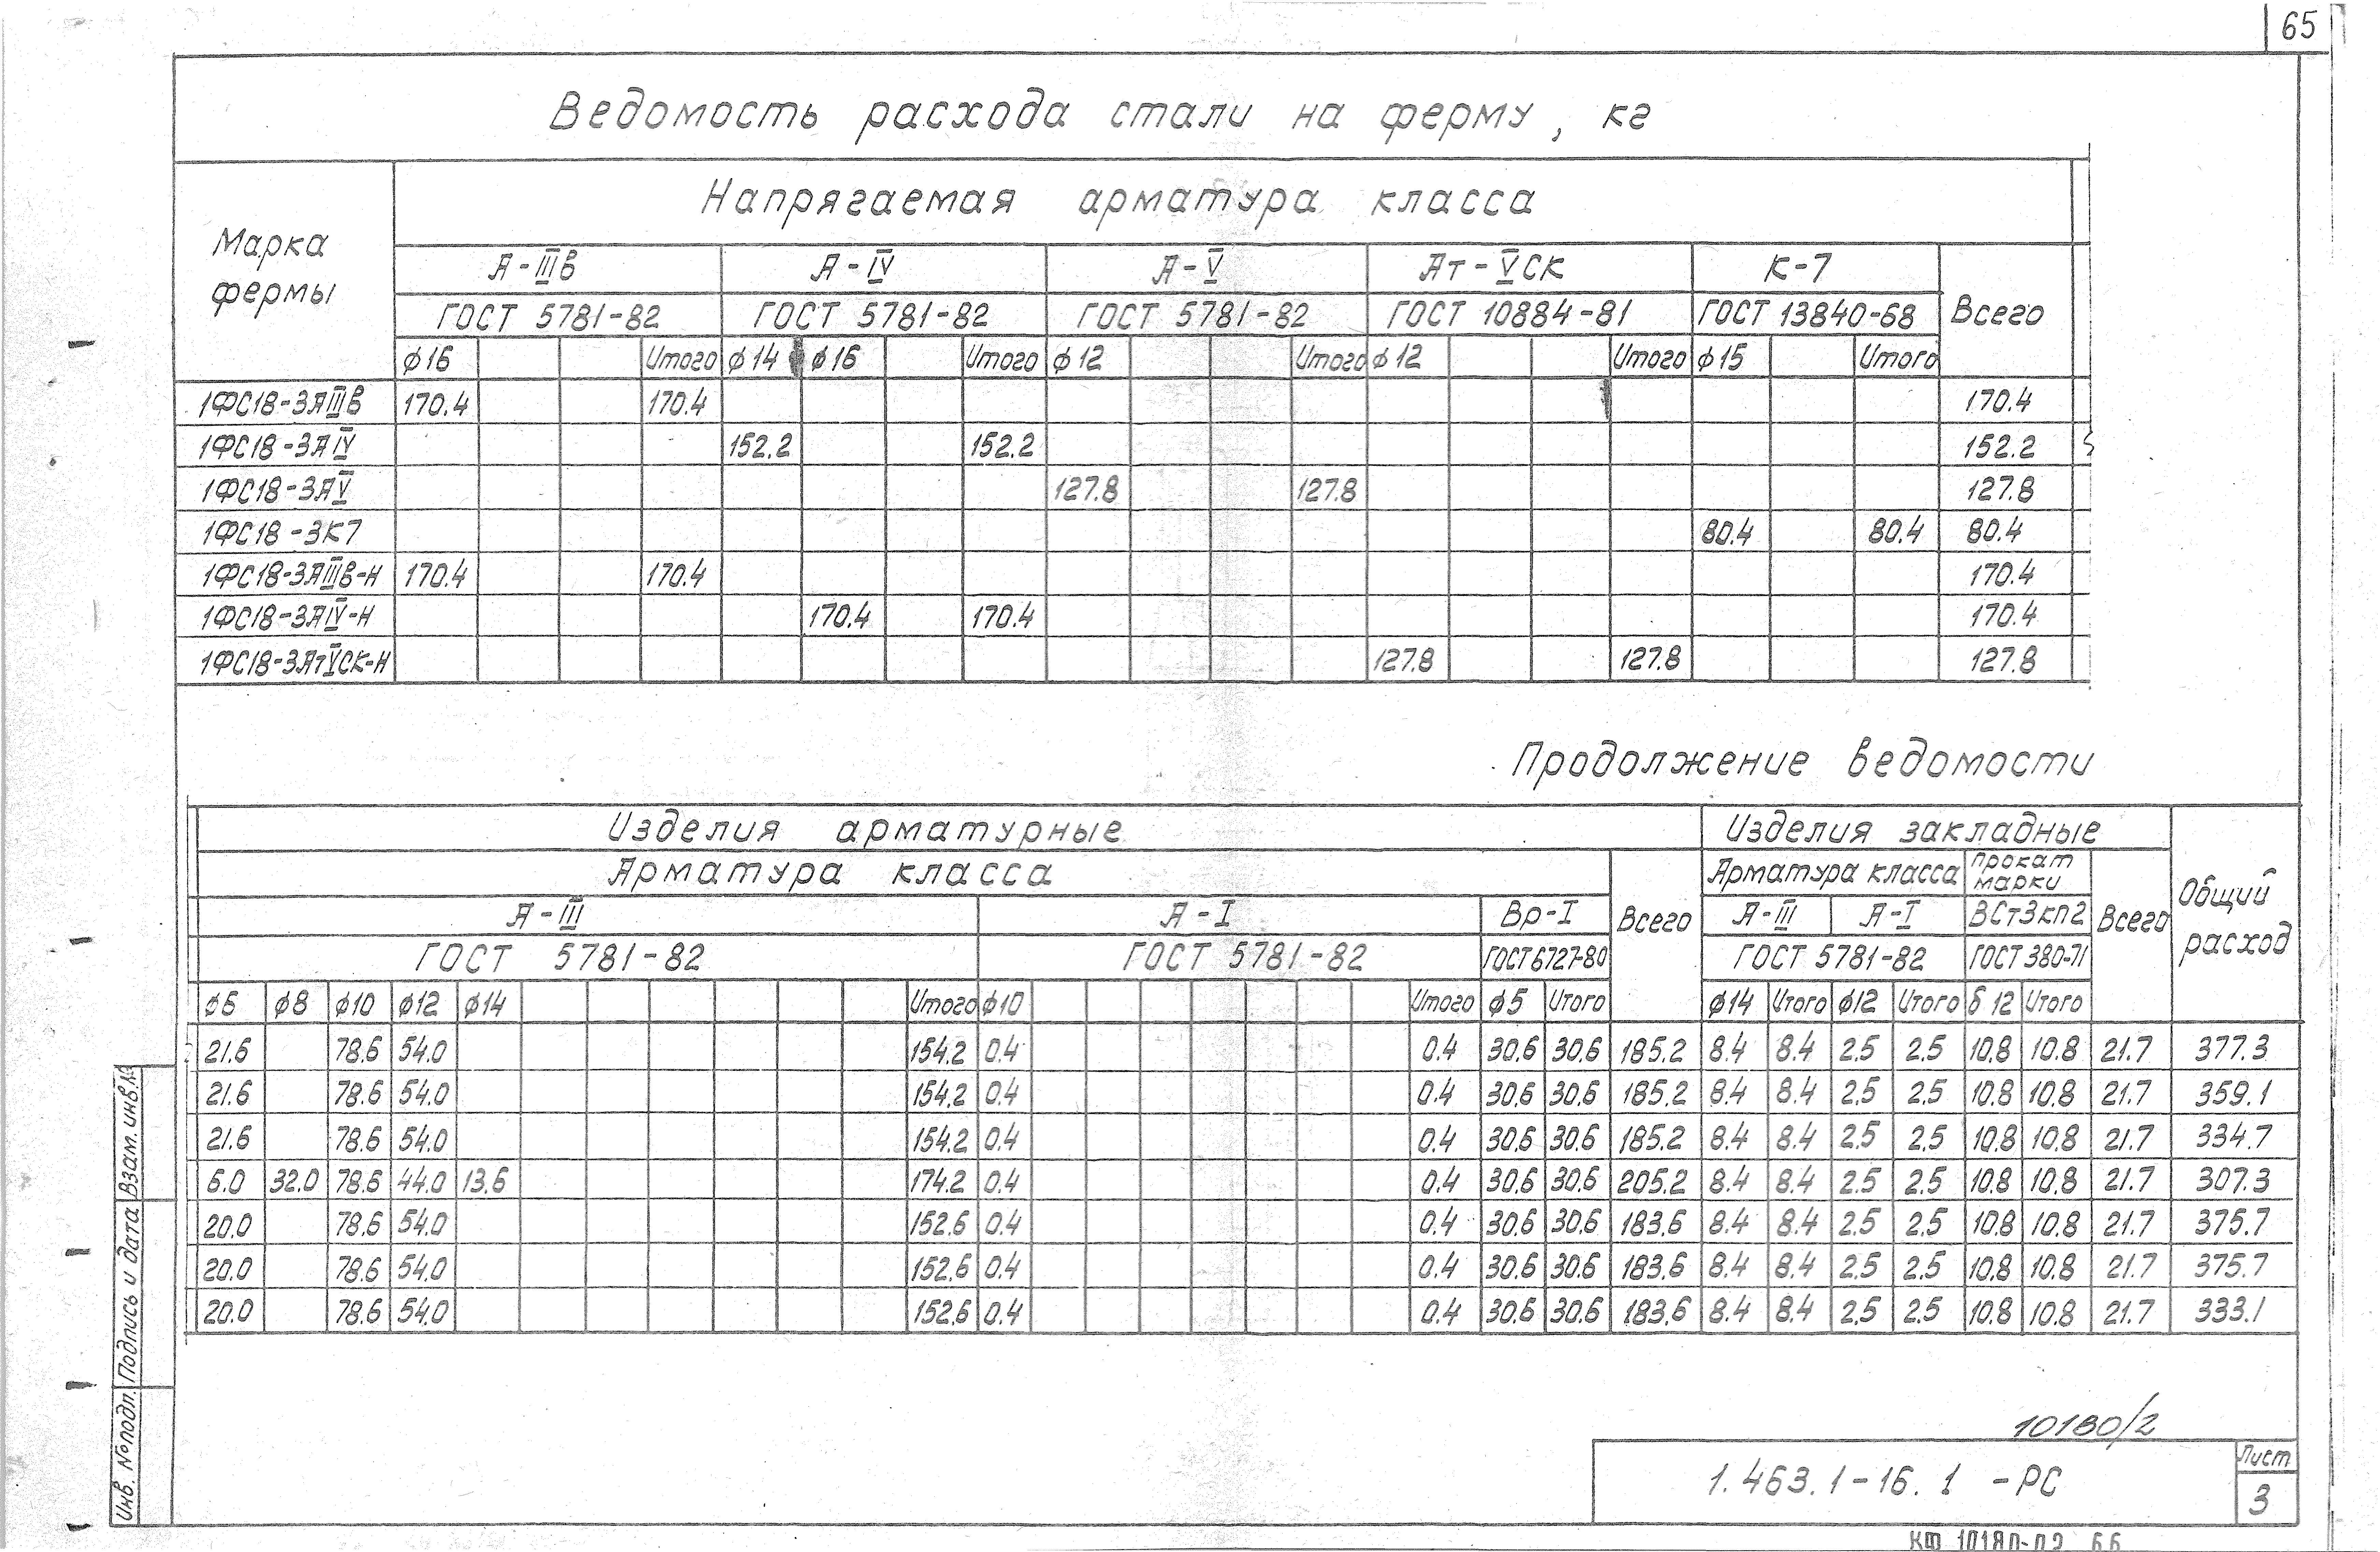 65
Ведомость расхода стали на ферму, кг
Марка фермы
Напрягаемая арматура класса
А-IIIв А-IV А-V Ат-VСК К-7 Всего
ГОСТ 5781-82 ГОСТ 5781-82 ГОСТ 5781-82 ГОСТ 10884-81 ГОСТ 13840-68
ф16 Итого ф14 ф16 Итого ф12 Итого ф12 Итого ф15 Итого
1ФС18-3АIIIв 170.4 170.4 170.4
1ФС18-3АIV 152.2 152.2 152.2
1ФС18-3АV 127.8 127.8 127.8
1ФС18-3К7 80.4 80.4 80.4
1ФС18-3АIIIв-Н 170.4 170.4 170.4
1ФС18-3АIV-Н 170.4 170.4 170.4
1ФС18-3АтVСК-Н 127.8 127.8 127.8
Продолжение ведомости
Изделия арматурные Изделия закладные Общий расход
Арматура класса Всего Арматура класса Прокат марки Всего
А-III А-I Вр-I А-III А-I ВСт3кп2
ГОСТ 5781-82 ГОСТ 5781-82 ГОСТ 6727-80 ГОСТ 5781-82 ГОСТ 380-71
ф6 ф8 ф10 ф12 ф14 Итого ф10 Итого ф5 Итого ф14 Итого ф12 Итого δ12 Итого
21.6 78.6 54.0 154.2 0.4 0.4 30.6 30.6 185.2 8.4 8.4 2.5 2.5 10.8 10.8 21.7 377.3
21.6 78.6 54.0 154.2 0.4 0.4 30.6 30.6 185.2 8.4 8.4 2.5 2.5 10.8 10.8 21.7 359.1
21.6 78.6 54.0 154.2 0.4 0.4 30.6 30.6 185.2 8.4 8.4 2.5 2.5 10.8 10.8 21.7 334.7
6.0 32.0 78.6 44.0 13.6 174.2 0.4 0.4 30.6 30.6 205.2 8.4 8.4 2.5 2.5 10.8 10.8 21.7 307.3
20.0 78.6 54.0 152.6 0.4 0.4 30.6 30.6 183.6 8.4 8.4 2.5 2.5 10.8 10.8 21.7 375.7
20.0 78.6 54.0 152.6 0.4 0.4 30.6 30.6 183.6 8.4 8.4 2.5 2.5 10.8 10.8 21.7 375.7
20.0 78.6 54.0 152.6 0.4 0.4 30.6 30.6 183.6 8.4 8.4 2.5 2.5 10.8 10.8 21.7 333.1
Инв. № подл. Подпись и дата Взам. инв. №
10180/2
1.463.1-16.1 -РС
Лист
3
КФ 10180-02 66